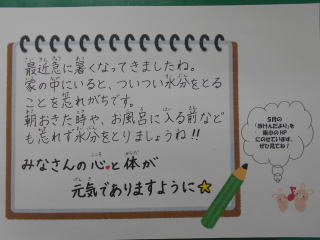 最近急に暑くなってきましたね。
家の中にいると、ついつい水分をとる
ことを忘れがちです。
朝おきた時や、お風呂に入る前など
も忘れず水分をとりましょうね!!
みなさんの心と体が
元気でありますように
5月の
「ほけんだより」を
南小のHP
にのせています。
ぜひ見てね!